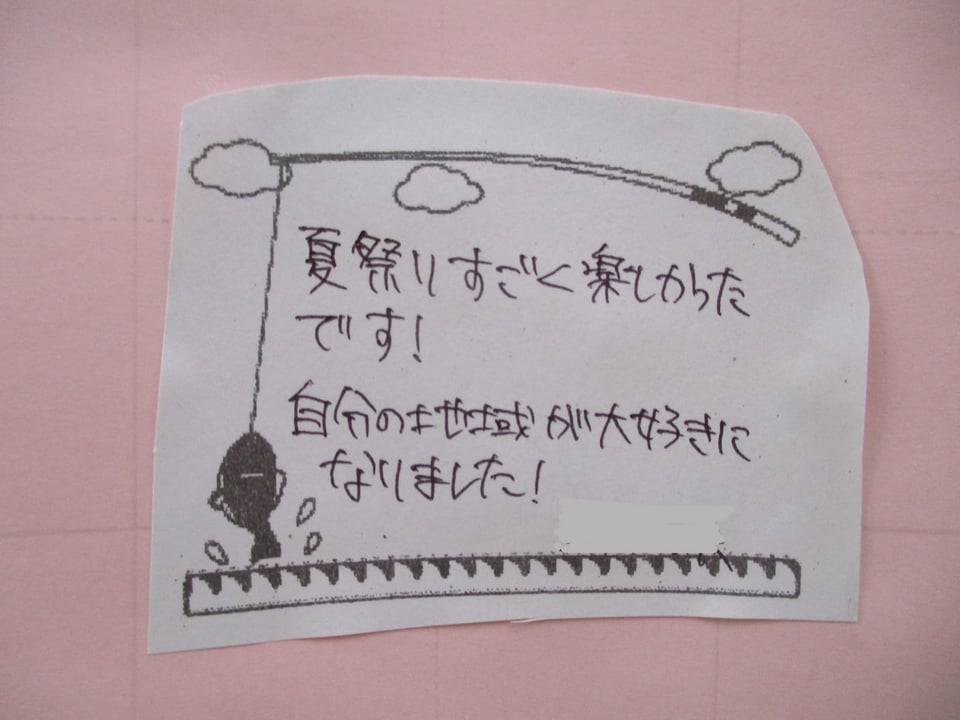 夏祭りすごく楽しかった
です!
自分の地域が大好きに
なりました!